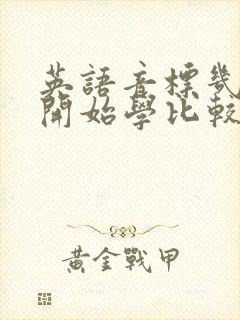 英語音標幾
開始學比較
黃金戰甲